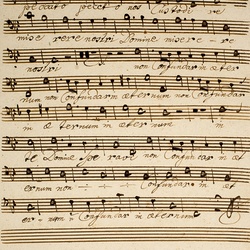 peccato peccato nos Custodi re
misere rere nostri Domine misere - re
nostri non Confundar in æter
num non Confundar in æternum non Confundar
in æternum in æter num in
te Domine Speravi non Confundar in æ
ternum non Confundar in æt
er - num non Confundar in æternum